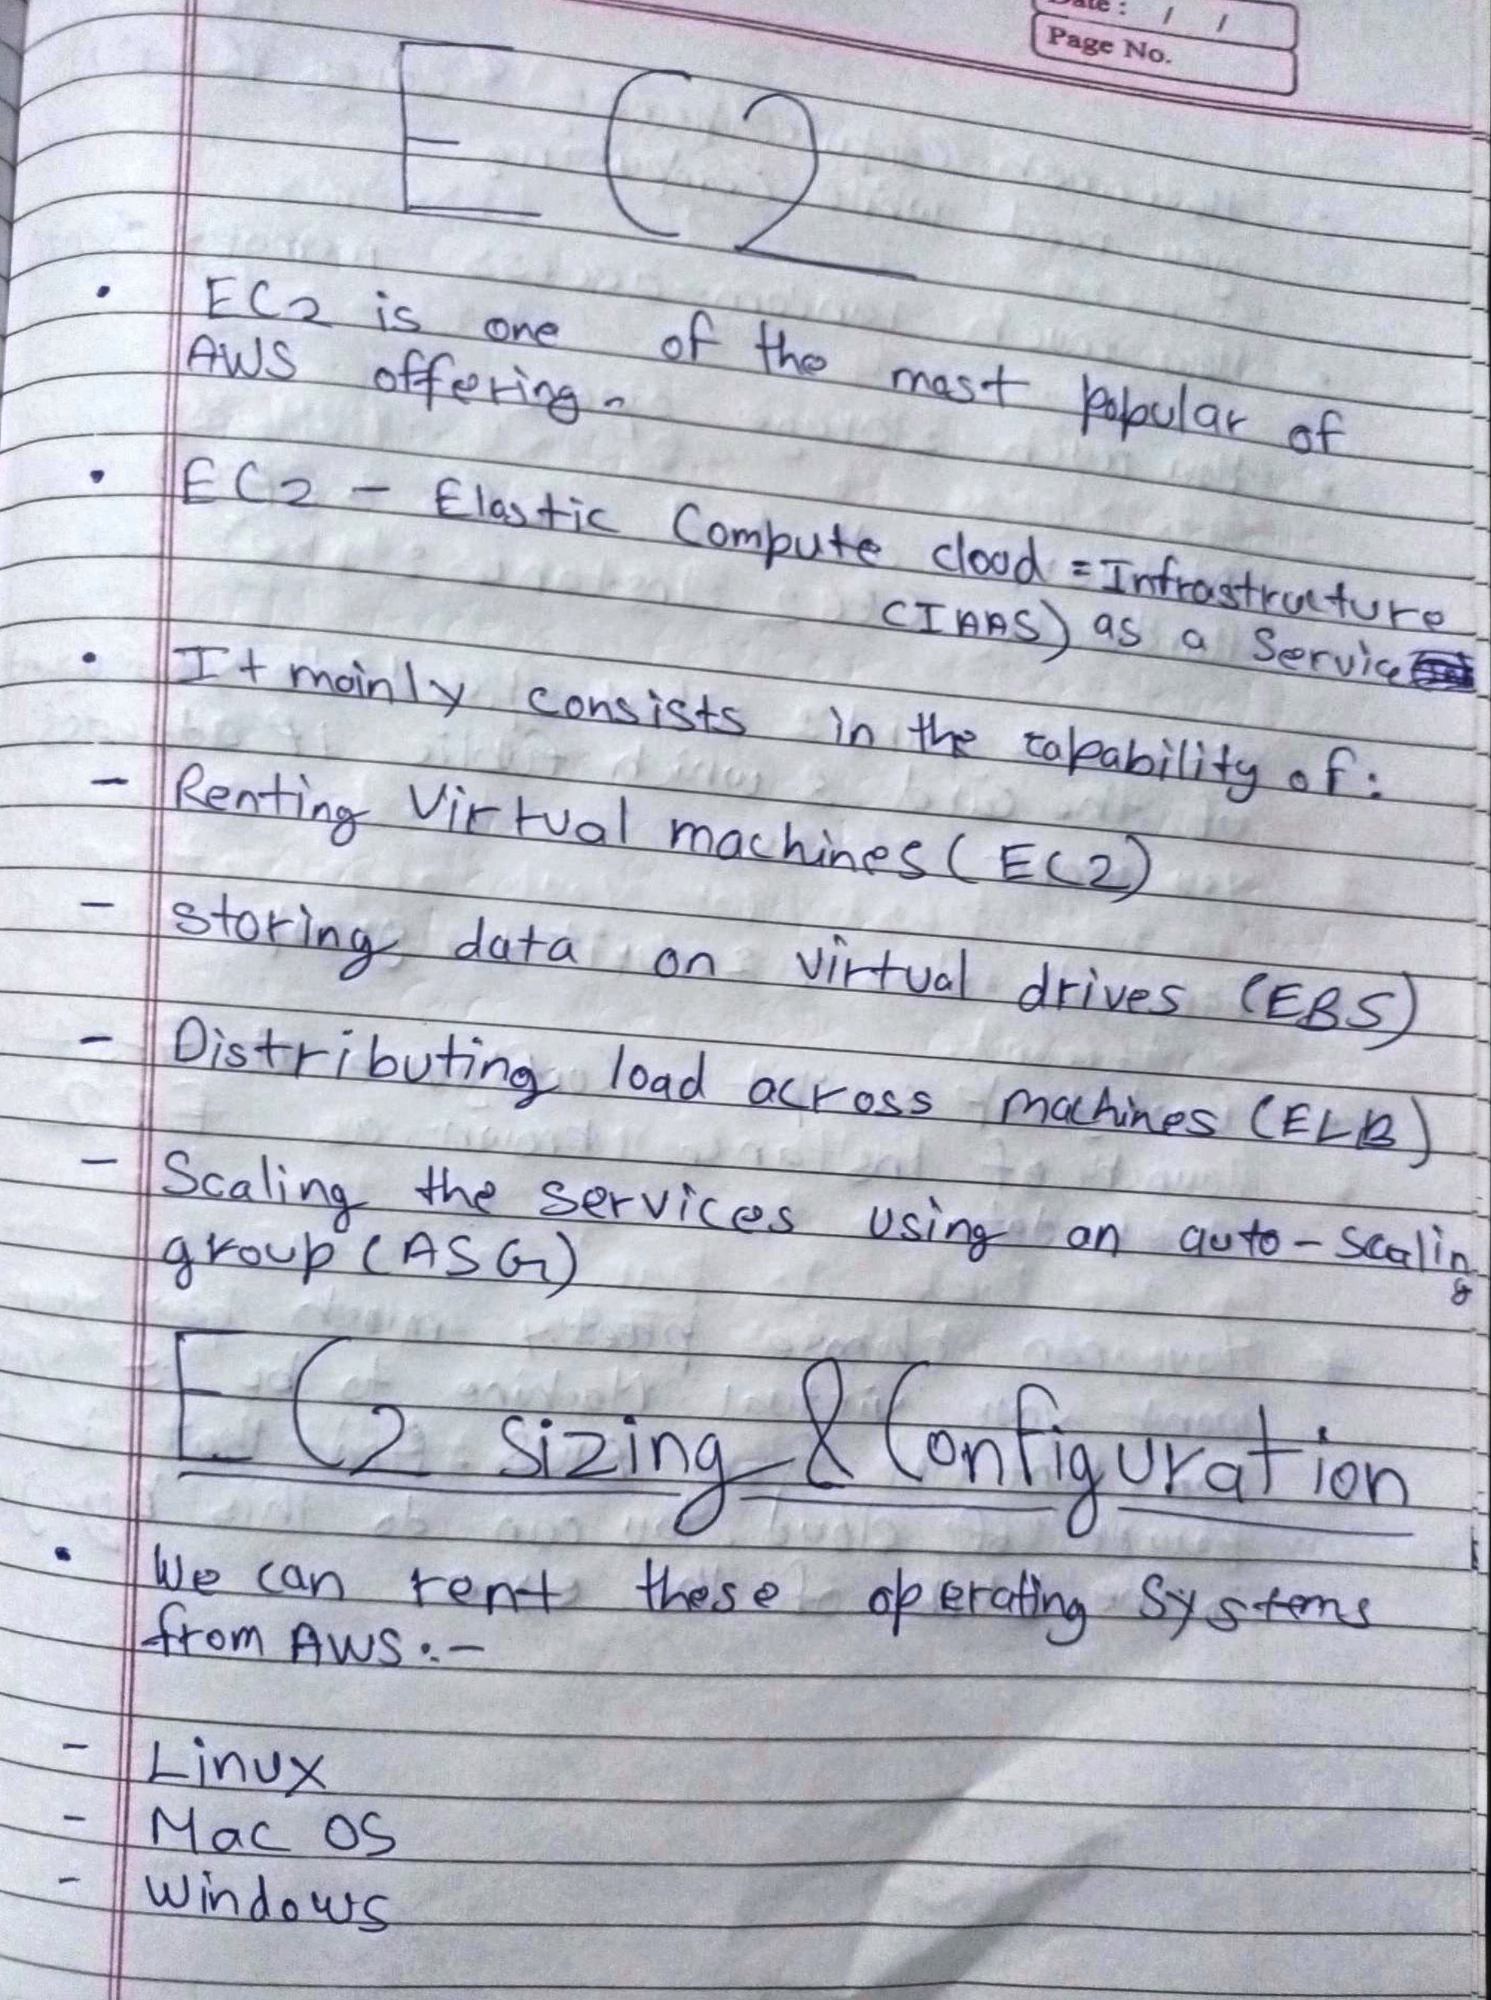 Date : / /
Page No.
EC2
• EC2 is one of the most popular of
AWS offering.
• EC2 - Elastic Compute clood = Infrastructure
(IAAS) as a Service
• It mainly consists in the capability of :
- Renting Virtual machines (EC2)
- storing data on virtual drives (EBS)
- Distributing load across machines (ELB)
- Scaling the services using an auto-scaling
group (ASG)
EC2 sizing & Configuration
• We can rent these operating Systems
from AWS :-
- Linux
- Mac OS
- Windows